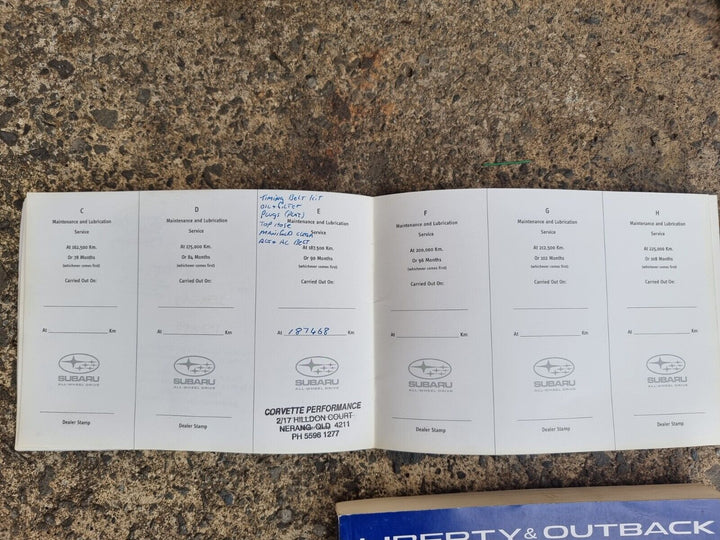 C
Maintenance and Lubrication
Service
At 162,500 Km.
Or 78 Months
(whichever comes first)
Carried Out On:
At Km
SUBARU
ALL-WHEEL DRIVE
Dealer Stamp
D
Maintenance and Lubrication
Service
At 175,000 Km.
Or 84 Months
(whichever comes first)
Carried Out On:
At Km
SUBARU
ALL-WHEEL DRIVE
Dealer Stamp
Timing Belt Kit
Oil & Filter
Plugs (Plat)
Top Hose
Manifold Clean
Alt & AC Belt
E
Maintenance and Lubrication
Service
At 187,500 Km.
Or 90 Months
(whichever comes first)
Carried Out On:
At 187468 Km
SUBARU
ALL-WHEEL DRIVE
CORVETTE PERFORMANCE
2/17 HILLDON COURT
NERANG QLD 4211
PH 5596 1277
F
Maintenance and Lubrication
Service
At 200,000 Km.
Or 96 Months
(whichever comes first)
Carried Out On:
At Km
SUBARU
ALL-WHEEL DRIVE
Dealer Stamp
G
Maintenance and Lubrication
Service
At 212,500 Km.
Or 102 Months
(whichever comes first)
Carried Out On:
At Km
SUBARU
ALL-WHEEL DRIVE
Dealer Stamp
H
Maintenance and Lubrication
Service
At 225,000 Km.
Or 108 Months
(whichever comes first)
Carried Out On:
At Km
SUBARU
ALL-WHEEL DRIVE
Dealer Stamp
LIBERTY & OUTBACK